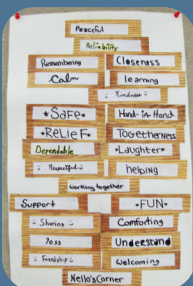 Peaceful
Reliability
Remembering Closeness
Calm learning
Kindness
*Safe* Hand-in-Hand
*Relief* Togetherness
Dependable *Laughter*
Respectful helping
Working together
Support *FUN*
- Sharing - Comforting
Understand
- Friendship - Welcoming
Nello's Corner